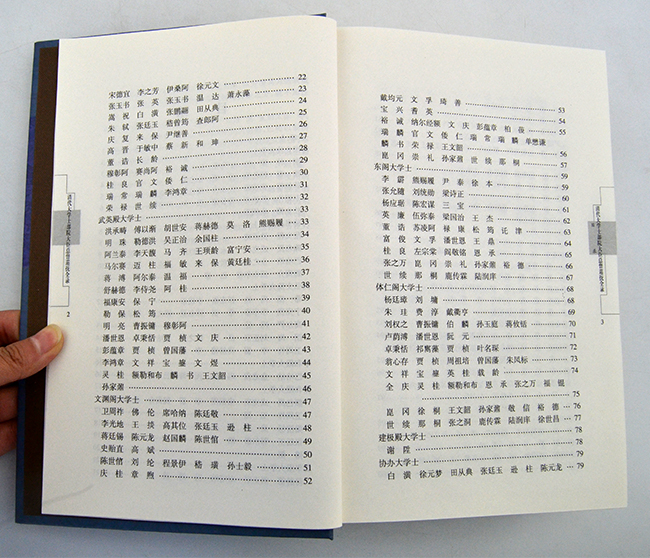 宋德宜 李之芳 伊桑阿 徐元文 22
张玉书 张英 张玉书 温达 萧永藻 23
嵩祝 白潢 张鹏翮 田从典 24
朱轼 张廷玉 嵇曾筠 查郎阿 25
庆复 来保 尹继善 26
高晋 于敏中 蔡新 和珅 27
董诰 长龄 28
穆彰阿 赛尚阿 裕诚 29
桂良 官文 倭仁 30
瑞常 瑞麟 李鸿章 31
荣禄 世续 32
武英殿大学士 33
洪承畴 傅以渐 胡世安 蒋赫德 莫洛 熊赐履 33
明珠 勒德洪 吴正治 余国柱 34
阿兰泰 李天馥 马齐 王顼龄 富宁安 35
马尔赛 迈柱 福敏 来保 黄廷桂 36
蒋溥 阿尔泰 温福 37
舒赫德 李侍尧 阿桂 38
福康安 保宁 39
勒保 松筠 40
明亮 曹振镛 穆彰阿 41
潘世恩 卓秉恬 贾桢 文庆 42
彭蕴章 贾桢 曾国藩 43
李鸿章 文祥 宝鋆 文煜 44
灵桂 额勒和布 麟书 王文韶 45
孙家鼐 46
文渊阁大学士 47
卫周祚 佛伦 席哈纳 陈廷敬 47
李光地 王掞 高其位 张廷玉 逊柱 48
蒋廷锡 陈元龙 赵国麟 陈世倌 49
史贻直 高斌 50
陈世倌 刘纶 程景伊 嵇璜 孙士毅 51
庆桂 章煦 52
清代大学士部院大臣总督巡抚全录
2
戴均元 文孚 琦善 53
宝兴 耆英 54
裕诚 纳尔经额 文庆 彭蕴章 柏葰 55
瑞麟 官文 倭仁 瑞常 瑞麟 单懋谦
麟书 荣禄 王文韶 56
崑冈 崇礼 孙家鼐 世续 那桐 57
东阁大学士 58
李霨 熊赐履 尹泰 徐本 58
张允随 刘统勋 梁诗正 59
杨应琚 陈宏谋 三宝 60
英廉 伍弥泰 梁国治 王杰 61
董诰 苏凌阿 禄康 松筠 讬津 62
富俊 文孚 潘世恩 王鼎 63
桂良 左宗棠 阎敬铭 恩承 64
张之万 崑冈 崇礼 孙家鼐 裕德 66
世续 那桐 鹿传霖 陆润庠 67
体仁阁大学士 68
杨廷璋 刘墉 68
朱珪 费淳 戴衢亨 69
刘权之 曹振镛 伯麟 孙玉庭 蒋攸铦 70
卢荫溥 潘世恩 阮元 71
卓秉恬 祁寯藻 贾桢 叶名琛 71
翁心存 贾桢 周祖培 曾国藩 朱凤标 72
文祥 宝鋆 英桂 载龄 74
全庆 灵桂 额勒和布 恩承 张之万 福锟
75
崑冈 徐桐 王文韶 孙家鼐 敬信 裕德 76
世续 那桐 张之洞 鹿传霖 陆润庠 徐世昌 77
建极殿大学士 78
谢陞 78
协办大学士 79
白潢 徐元梦 田从典 张廷玉 逊柱 陈元龙 79
清代大学士部院大臣总督巡抚全录
目录
3